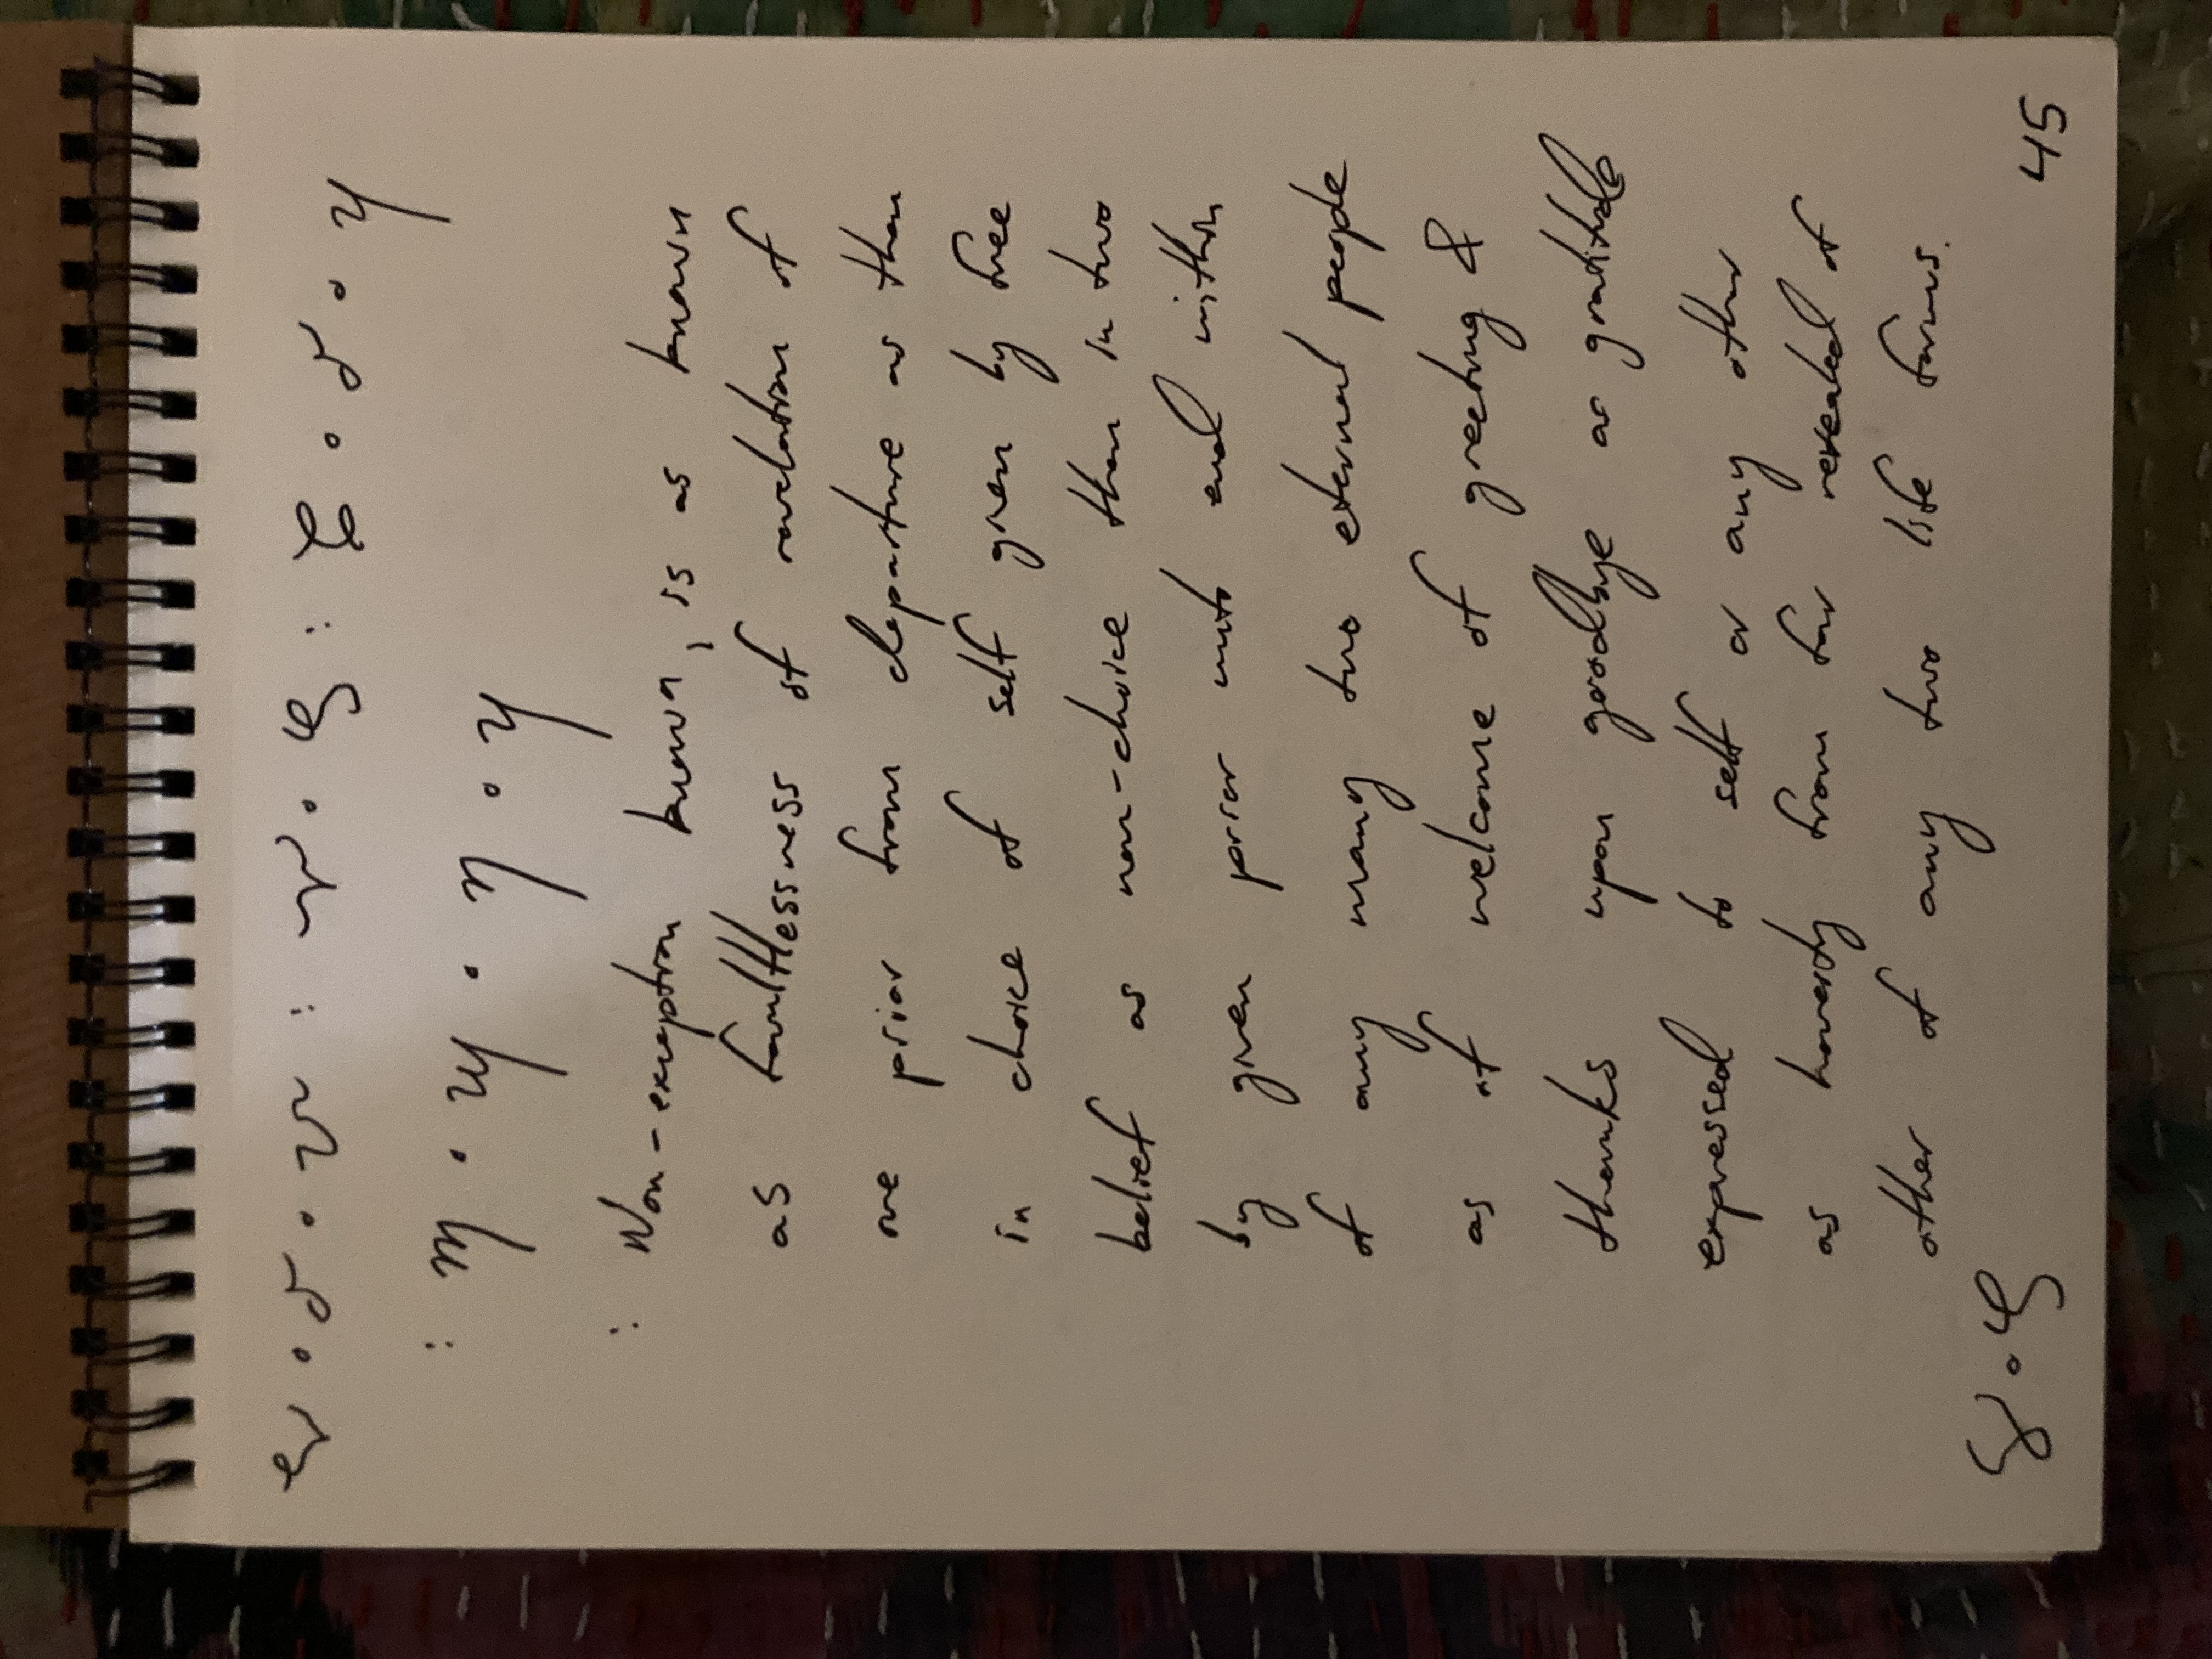 : Non-exception known, is as known
as faultlessness of revelation of
one prior from departure as then
in choice of self given by free
belief as non-choice then in two
by given prior unto end within
of any many two eternal people
as of welcome of greeting &
thanks upon goodbye as gratitude
expressed to self or any other
as honesty from for revealed of
other of any two life forms.
45